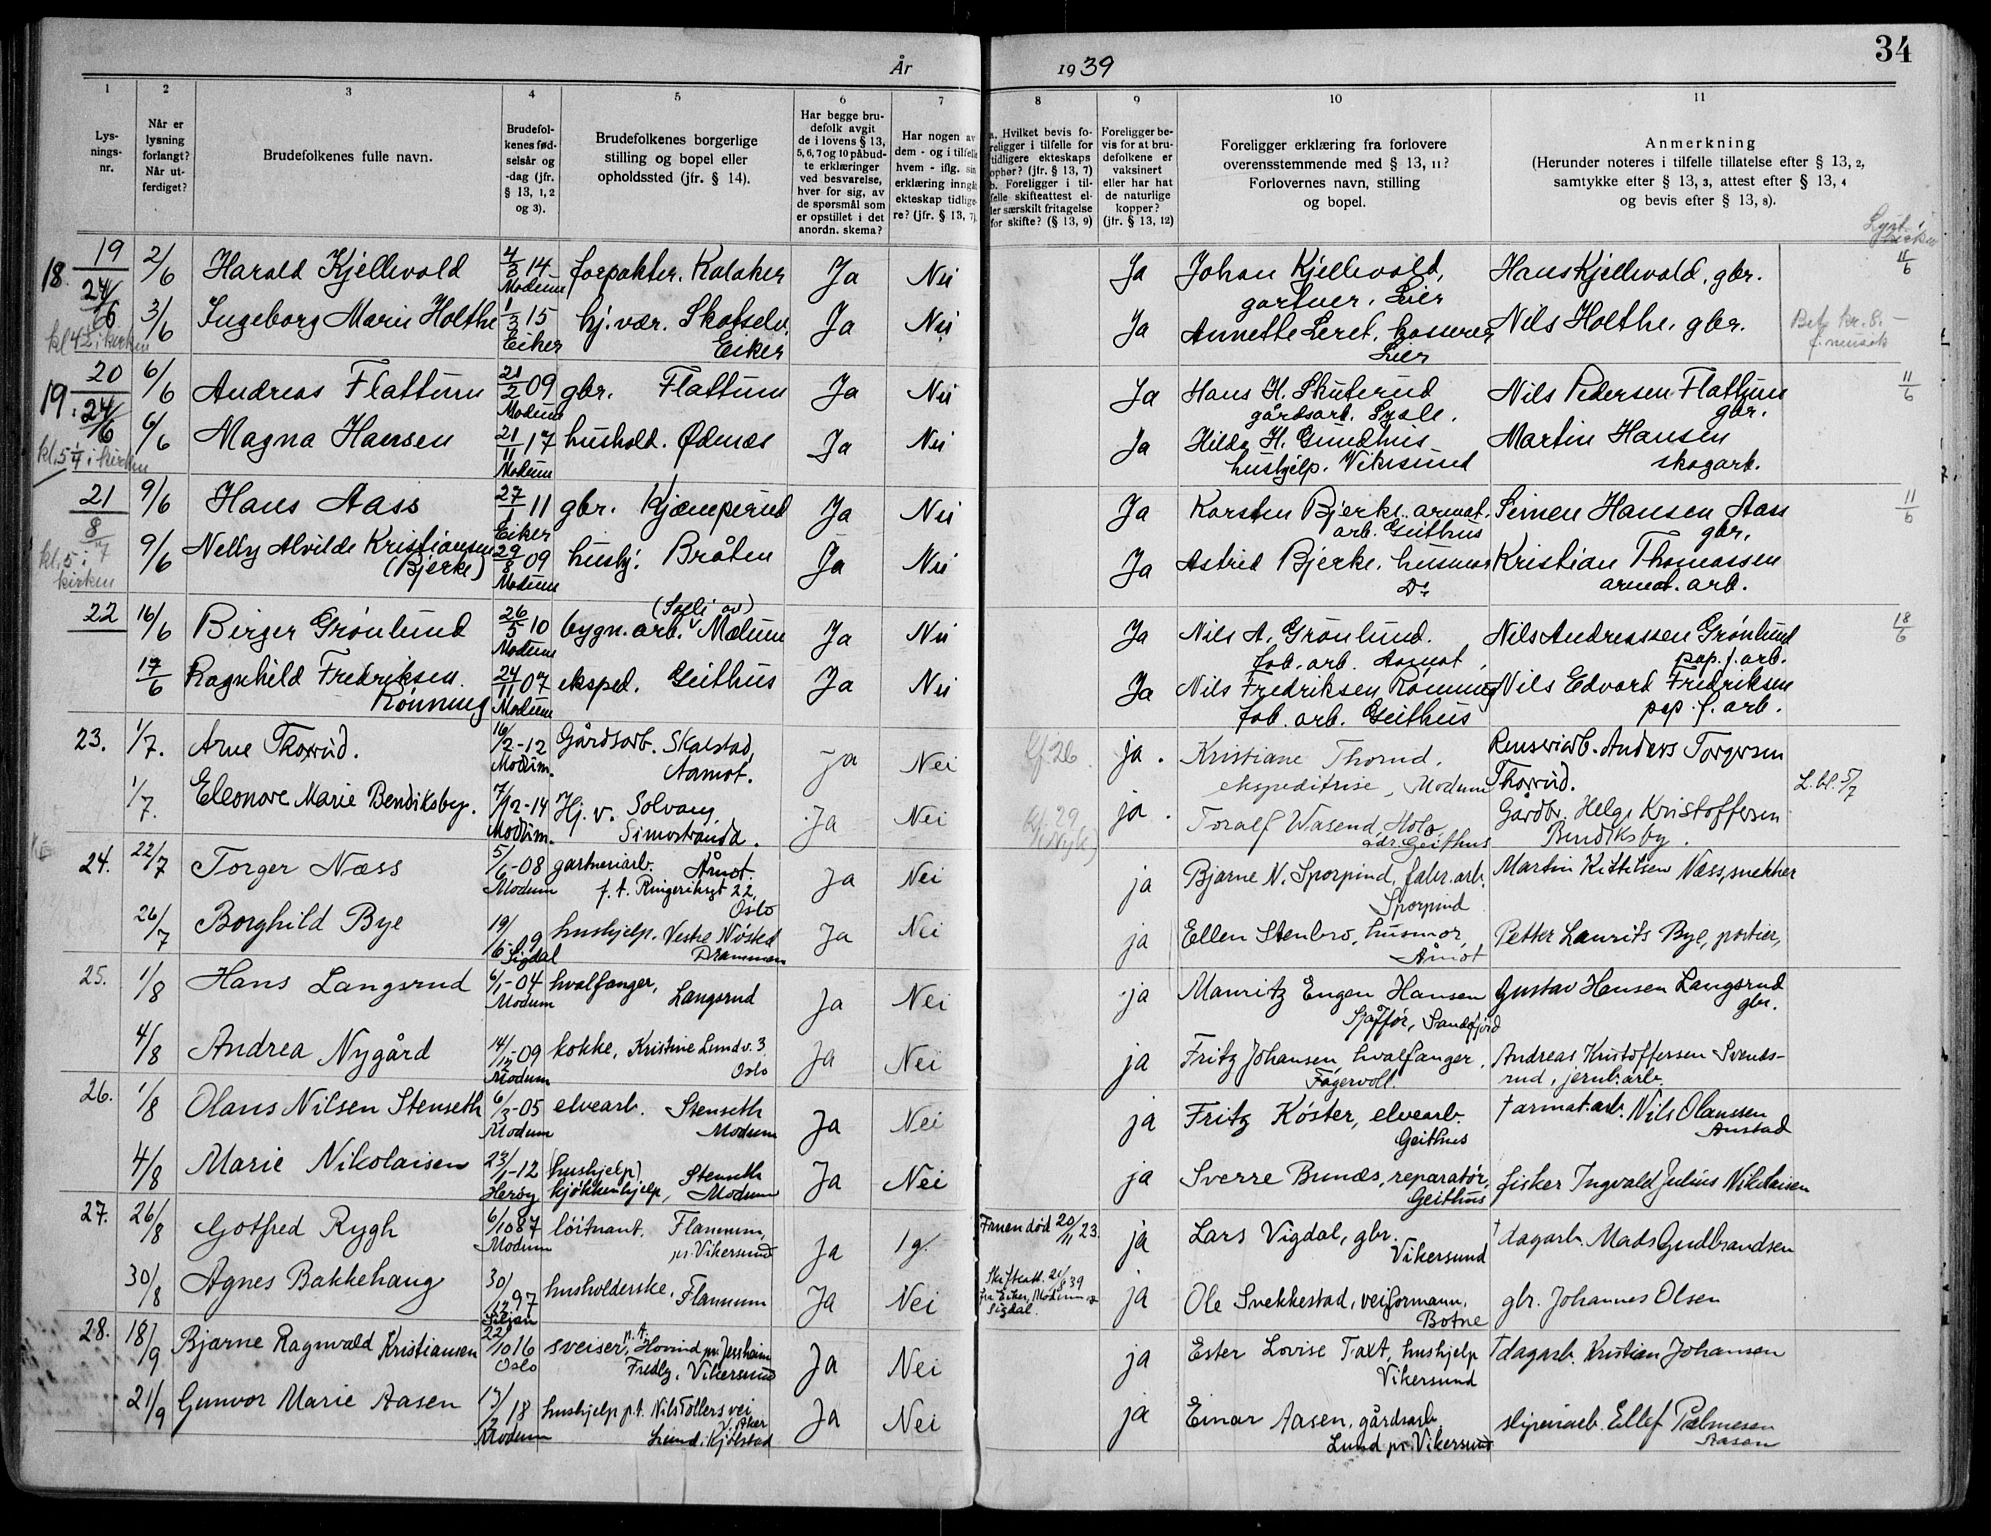 34
År 1939
1 2 3 4 5 6 7 8 9 10 11
Lysningsnr.
Når er lysning forlangt? Når utferdiget?
Brudefolkenes fulle navn.
Brudefolkenes fødselsår og -dag (jfr. § 13, 1, 2 og 3).
Brudefolkenes borgerlige stilling og bopel eller opholdssted (jfr. § 14).
Har begge brudefolk avgit de i lovens § 13, 5, 6, 7 og 10 påbudte erklæringer ved besvarelse, hver for sig, av de spørsmål som er opstillet i det anordn. skema?
Har nogen av dem - og i tilfelle hvem - iflg. sin erklæring inngått ekteskap tidligere? (jfr. § 13, 7).
a. Hvilket bevis foreligger i tilfelle for tidligere ekteskaps ophør? (jfr. § 13, 7)
b. Foreligger i tilfelle skifteattest eller særskilt fritagelse for skifte? (§ 13, 9)
Foreligger bevis for at brudefolkene er vaksinert eller har hat de naturlige kopper? (jfr. § 13, 12)
Foreligger erklæring fra forlovere overensstemmende med § 13, 11? Forlovernes navn, stilling og bopel.
Anmerkning
(Herunder noteres i tilfelle tillatelse efter § 13, 2, samtykke efter § 13, 3, attest efter § 13, 4 og bevis efter § 13, 8).
Lyst i kirken
18. 19 2/6 Harald Kjellevold 4/3 14 Modum forpakter. Kalaker Ja Nei Ja Johan Kjellevold, Hans Kjellevold, gbr. 11/6
24/6 gartner. Lier
3/6 Ingeborg Marie Holthe 1/3 15 Eiker hj. vær. Skotselv. Eiker Ja Nei Ja Annette Leret, Nils Holthe. gbr. Bet. kr. 8.-
kl 4½ i kirken Lier
19. 20 6/6 Andreas Flattum 21/2 09 Modum gbr. Flattum Ja Nei Ja Hans H. Skuterud Nils Pedersen Flattum 11/6
24/6 gårdsarb. Sysle. gbr.
6/6 Magna Hansen 21/11 17 Modum hushold. Ødenæs Ja Nei Ja Hilda H. Gundhus Martin Hansen
kl. 5¼ i kirken hushjelp. Vikersund skogarb.
21 9/6 Hans Aass 27/1 11 Eiker gbr. Kjæmperud Ja Nei Ja Karsten Bjerke. armat. Simen Hansen Aass 11/6
8/7 arb. Geithus gbr.
9/6 Nelly Alvilde Kristiansen 29/8 09 Modum hushj. Bråten Ja Nei Ja Astrid Bjerke. husmor Kristian Thomassen
kl. 5 i kirken (Bjerke) Do armat. arb.
22 16/6 Birger Grönlund 26/5 10 Modum bygn. arb. Modum Ja Nei Ja Nils A. Grönlund. Nils Andreassen Grönlund 18/6
fab. arb. Aamot. pap. f. arb.
17/6 Ragnhild Fredriksen 24/11 07 Modum eksped. Geithus Ja Nei Ja Nils Fredriksen Rönning Nils Edvard Fredriksen
Rönning fab. arb. Geithus pap. f. arb.
23. 1/7. Arne Thorrud. 16/2-12 Modum. Gårdsarb. Skalstad, Aamot. Ja Nei kf. 26. ja. Kristiane Thorud, Renseriarb. Anders Torgersen
ekspeditrise, Modum Thorrud.
1/7. Eleonore Marie Bendiksby. 7/12-14 Modum. Hj. v. Solvang, Simostranda. Ja Nei kf. 29 ja. Toralf Wasend, Holo, Gårdbr. Helge Kristoffersen L. bl. 5/7
adr. Geithus Bendiksby.
24. 22/7 Torger Næss 5/6-08 Modum gartneriarb. Åmot. Ja Nei ja Bjarne N. Sporpind, fabr. arb. Martin Kittilsen Næss, snekker
f. t. Ringeriksgt 22, Oslo Sporpind
26/7 Borghild Bye 19/6-09 Sigdal hushjelp. Vestre Nøsted Drammen Ja Nei ja Ellen Stenbro, husmor, Petter Laurits Bye, portier,
Åmot
25. 1/8 Hans Langsrud 6/1-04 Modum hvalfanger, Langsrud Ja Nei ja Mauritz Eugen Hansen Gustav Hansen Langsrud
Sjåffør, Sandefjord gbr.
4/8 Andrea Nygård 14/12-09 Modum kokke, Kristine Lundv. 3 Oslo Ja Nei ja Fritz Johansen hvalfanger. Andreas Kristoffersen Svends-
Fagervoll rud, jernb. arb.
26. 1/8 Olaus Nilsen Stenseth 6/3-05 Modum elvearb. Stenseth Modum Ja Nei ja Fritz Köster, elvearb. † armat. arb. Nils Olaussen
Geithus Austad
4/8 Marie Nikolaisen 23/1-12 Herøy (hushjelp) kjökkenhjelp, Stenseth Modum Ja Nei ja Sverre Bunæs, reparatör, fisker Ingvald Julius Nikolaisen
Geithus
27. 26/8 Gotfred Rygh 6/10 87 Modum löitnant. Flannum, pr. Vikersund Ja 1 g. Fruen död 20/11 23. ja Lars Vigdal, gbr. † dagarb. Mads Gudbrandsen
Vikersund
30/8 Agnes Bakkehaug 30/12 97 Siljan husholderske, Flannum Ja Nei Skifteatt. 21/8 39 fra Eiker, Modum og Sigdal. ja Ole Snekkestad, veiformann, gbr. Johannes Olsen
Botne
28. 18/9 Bjarne Ragnvald Kristiansen 22/10 16 Oslo sveiser, p.t. Hovind pr. Jessheim Fredly, Vikersund Ja Nei ja Ester Lovise Taxt, hushjelp † dagarb. Kristian Johansen
Vikersund
21/9 Gunvor Marie Aasen 17/2 18 Modum hushjelp p.t. Nils Tollers vei V. Aker Lund, Kjölstad Ja Nei ja Einar Aasen, gårdsarb. sliperiarb. Ellef Palmesen
Lund pr. Vikersund Aasen